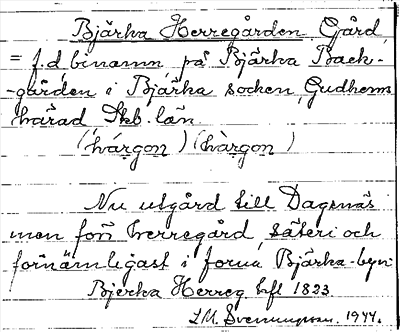 Bjärka Herregården Gård
= f.d. binamn på Bjärka Back-
-gården i Bjärka socken, Gudhems
härad Skb. län.
(hárgon) (hàrgon)
Nu utgård till Dagsnäs
men förr herregård, säteri och
förnämligast i forna Bjärka-byn
Bjerka Herreg hfl 1823
1944.